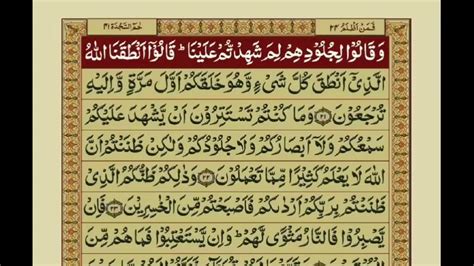 فَمَنْ اَظْلَمُ ٢٤
حٰمٓ السَّجْدَة ٤١
وَقَالُوْا لِجُلُوْدِهِمْ لِمَ شَهِدْتُّمْ عَلَيْنَا ؕ قَالُوْۤا اَنْطَقَنَا اللّٰهُ
الَّذِیْۤ اَنْطَقَ كُلَّ شَیْءٍ وَّهُوَ خَلَقَكُمْ اَوَّلَ مَرَّةٍ وَّاِلَيْهِ
تُرْجَعُوْنَ ﴿٢١﴾ وَمَا كُنْتُمْ تَسْتَتِرُوْنَ اَنْ يَّشْهَدَ عَلَيْكُمْ
سَمْعُكُمْ وَلَاۤ اَبْصَارُكُمْ وَلَا جُلُوْدُكُمْ وَلٰكِنْ ظَنَنْتُمْ اَنَّ
اللّٰهَ لَا يَعْلَمُ كَثِيْرًا مِّمَّا تَعْمَلُوْنَ ﴿٢٢﴾ وَذٰلِكُمْ ظَنُّكُمُ الَّذِیْ
ظَنَنْتُمْ بِرَبِّكُمْ اَرْدٰىكُمْ فَاَصْبَحْتُمْ مِّنَ الْخٰسِرِيْنَ ﴿٢٣﴾ فَاِنْ
يَّصْبِرُوْا فَالنَّارُ مَثْوًى لَّهُمْ ؕ وَاِنْ يَّسْتَعْتِبُوْا فَمَا هُمْ مِّنَ